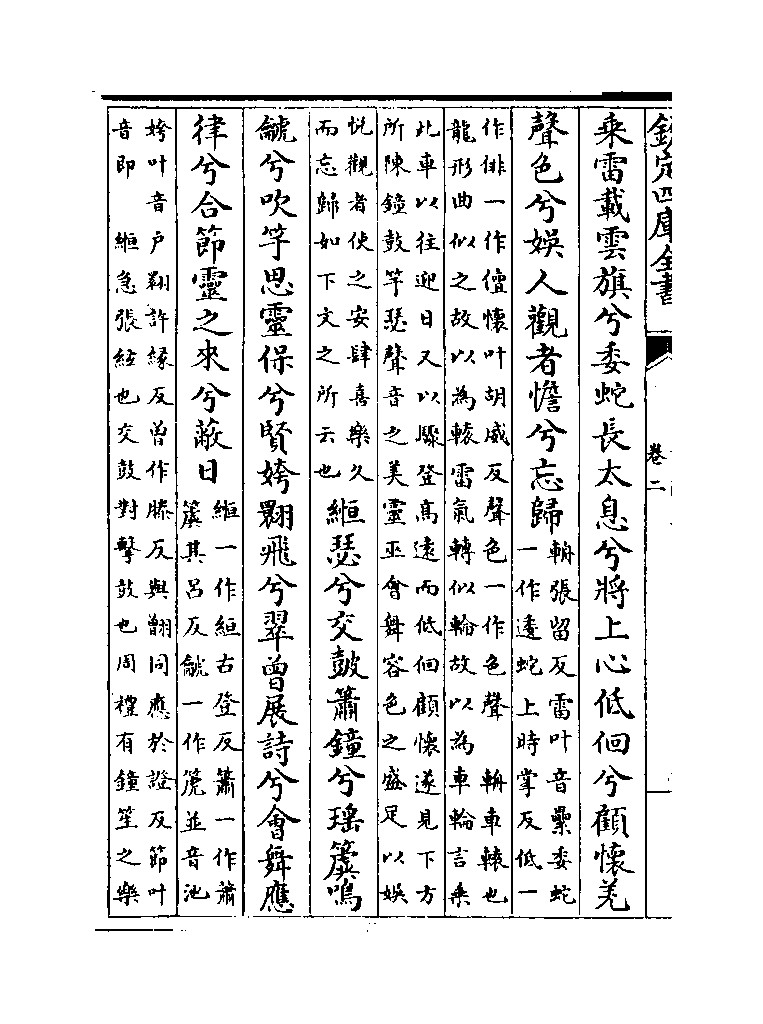 欽定四庫全書
卷二
乘雷載雲旗兮委蛇長太息兮將上心低佪兮顧懷羌
聲色兮娛人觀者憺兮忘歸
輈張留反雷叶音纍委蛇
一作逶蛇上時掌反低一
作俳一作儃懷叶胡威反聲色一作色聲　輈車轅也
龍形曲似之故以為轅雷氣轉似輪故以為車輪言乘
此車以往迎日又以驟登高遠而低佪顧懷遂見下方
所陳鐘鼓竽瑟聲音之美靈巫會舞容色之盛足以娛
悅觀者使之安肆喜樂久
而忘歸如下文之所云也
緪瑟兮交鼓簫鐘兮瑤簴鳴
䶵兮吹竽思靈保兮賢姱翾飛兮翠曾展詩兮會舞應
律兮合節靈之來兮蔽日
緪一作絙古登反簫一作蕭
簴其呂反䶵一作箎並音池
姱叶音户翾許緣反曾作滕反與䎖同應於證反節叶
音即　緪急張絃也交鼓對擊鼓也周禮有鐘笙之樂